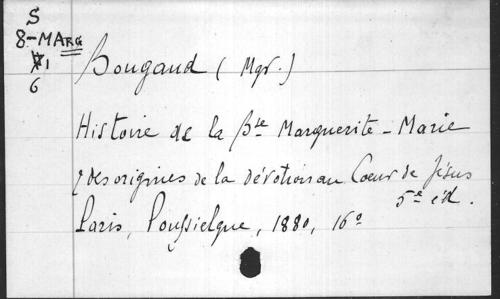 S
8-MARG
1
6
Bougaud (Mgr.)
Histoire de la Bse Marguerite-Marie
& des origines de la dévotion au Coeur de Jésus
5e éd.
Paris, Poussielgue, 1880, 16º